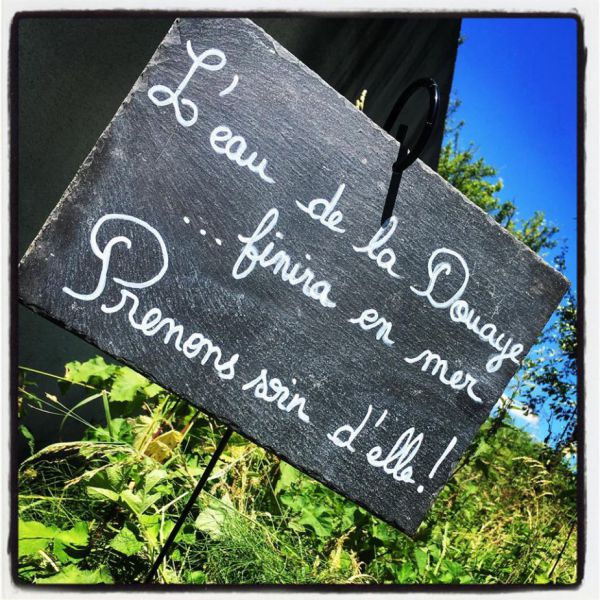 L'eau de la Douaye
... finira en mer
Prenons soin d'elle!